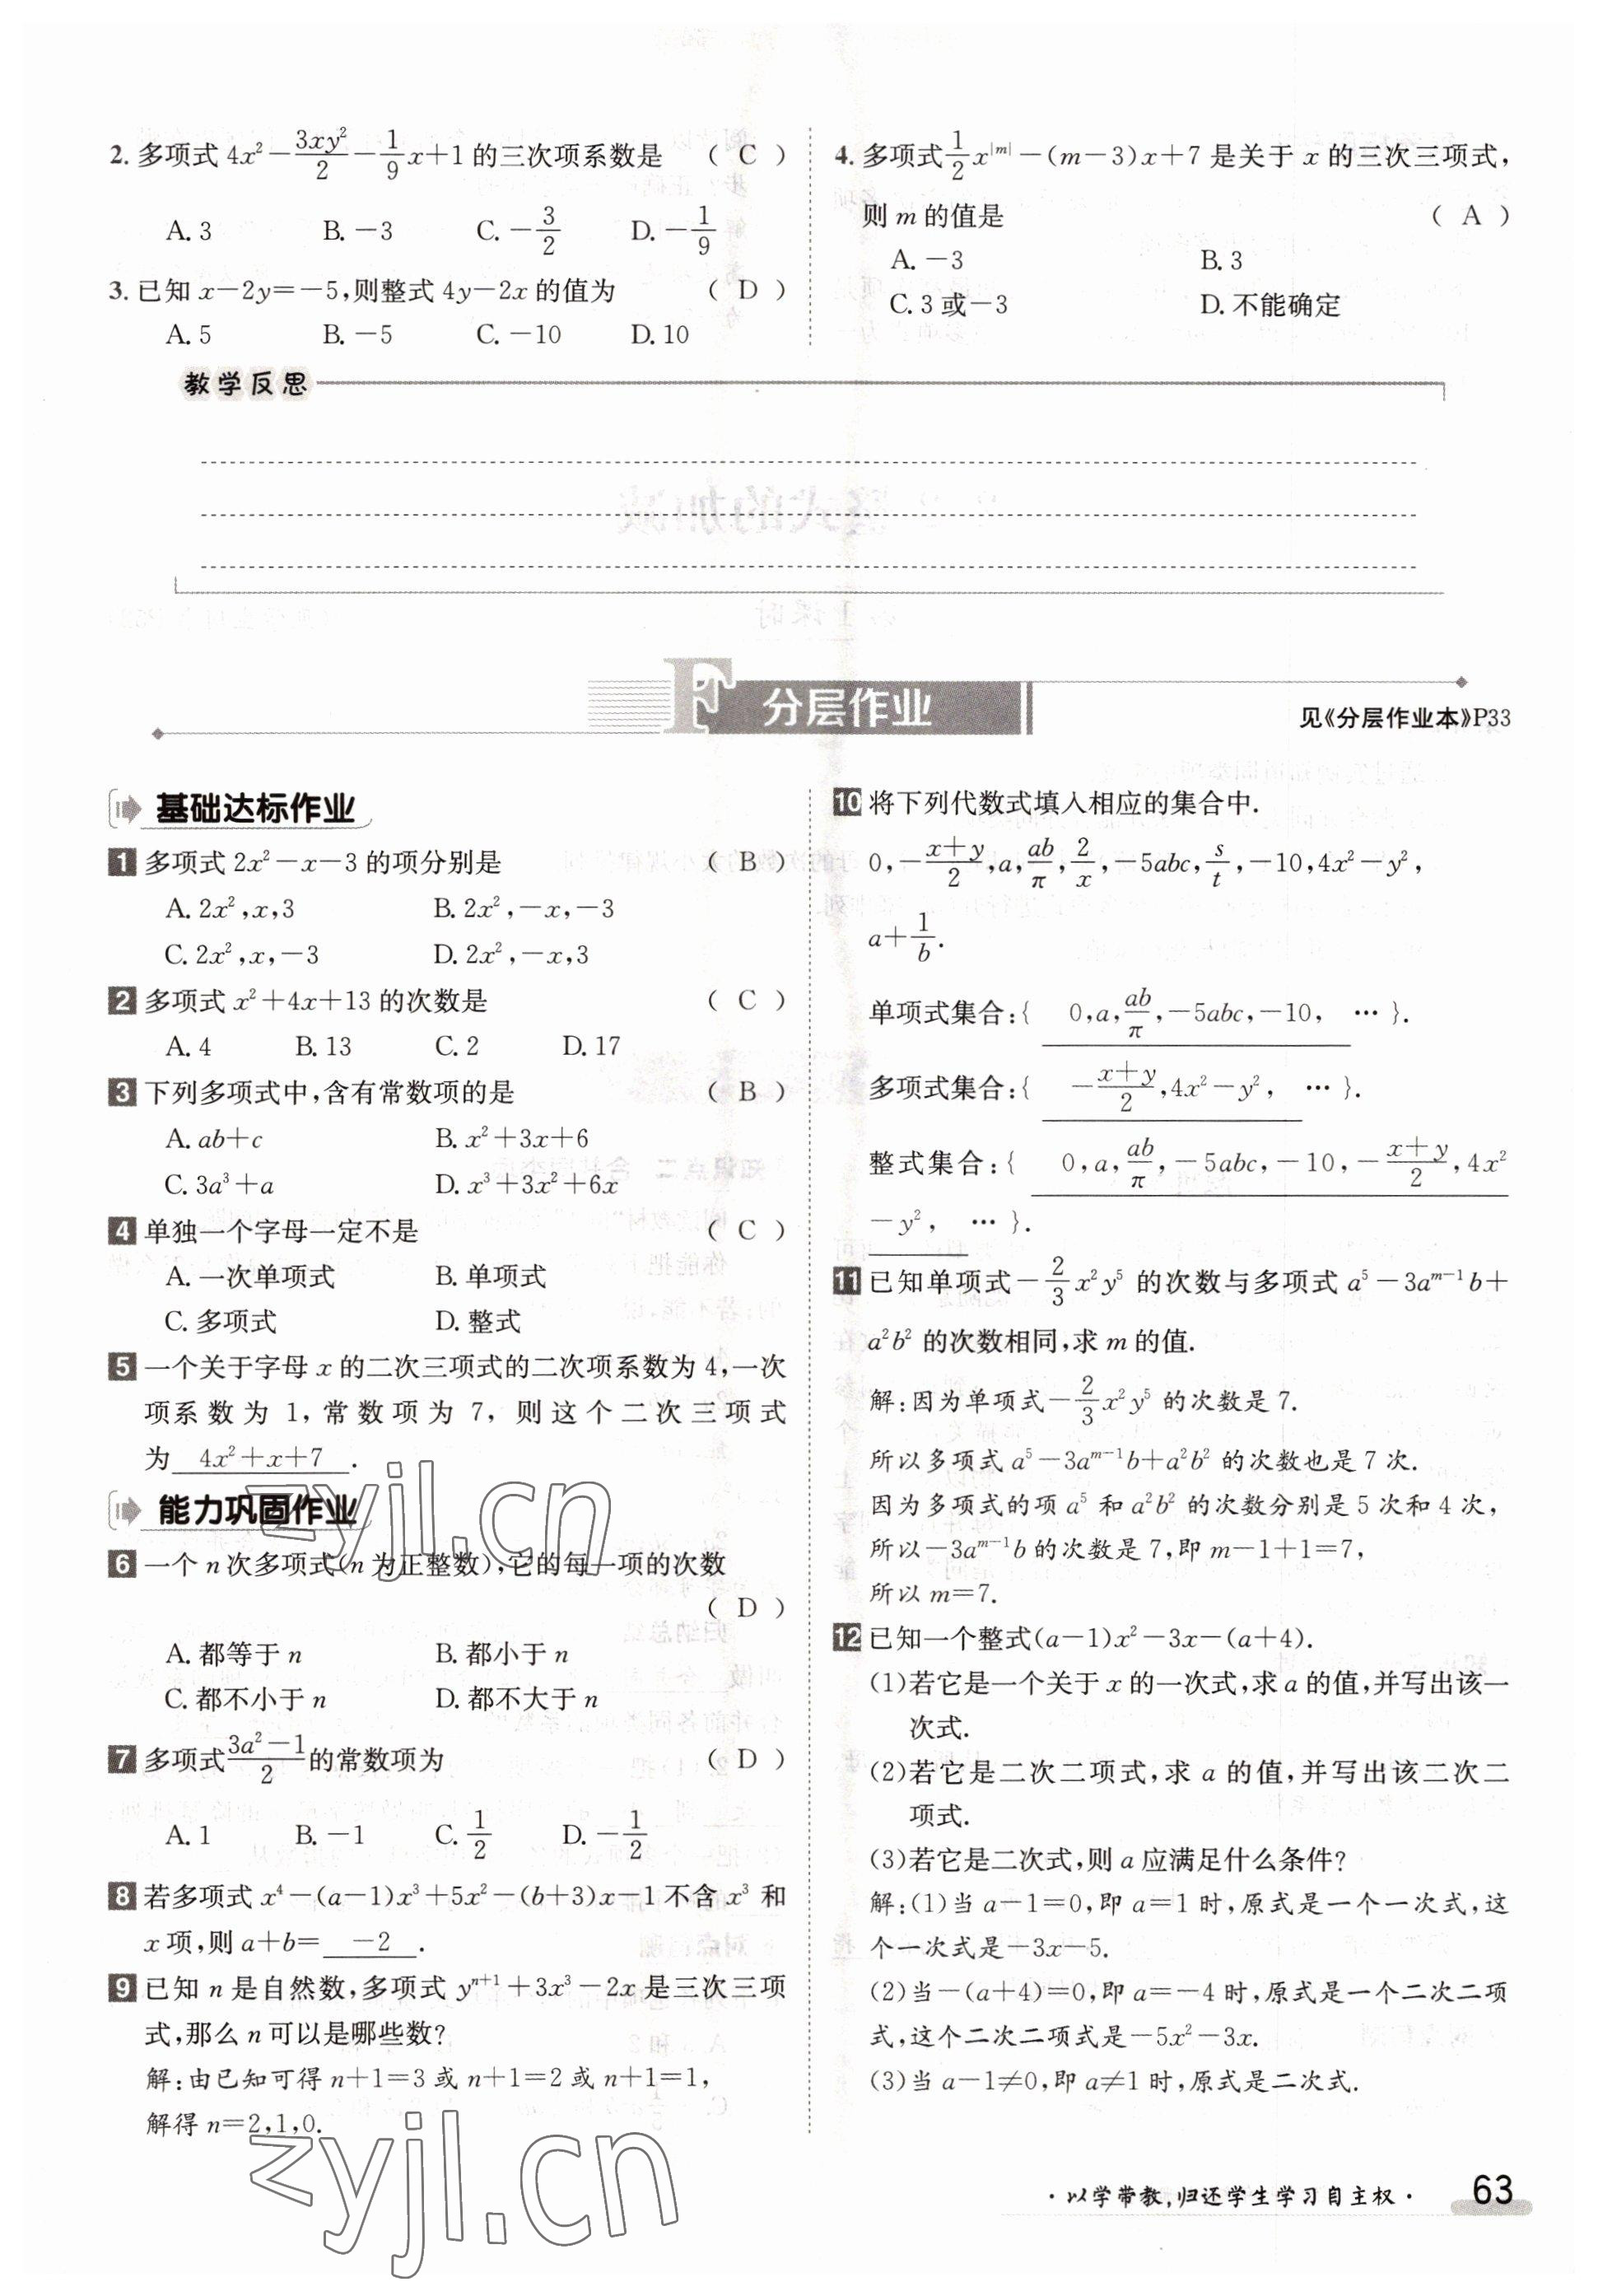 2. 多项式 4x²－3xy²/2－1/9x＋1 的三次项系数是 ( C )
A. 3 B. －3 C. －3/2 D. －1/9
3. 已知 x－2y＝－5,则整式 4y－2x 的值为 ( D )
A. 5 B. －5 C. －10 D. 10
4. 多项式1/2x^|m|－(m－3)x＋7 是关于 x 的三次三项式,
则 m 的值是 ( A )
A. －3 B. 3
C. 3 或－3 D. 不能确定
教学反思
F 分层作业
见《分层作业本》P33
基础达标作业
1 多项式 2x²－x－3 的项分别是 ( B )
A. 2x²,x,3 B. 2x²,－x,－3
C. 2x²,x,－3 D. 2x²,－x,3
2 多项式 x²＋4x＋13 的次数是 ( C )
A. 4 B. 13 C. 2 D. 17
3 下列多项式中,含有常数项的是 ( B )
A. ab＋c B. x²＋3x＋6
C. 3a³＋a D. x³＋3x²＋6x
4 单独一个字母一定不是 ( C )
A. 一次单项式 B. 单项式
C. 多项式 D. 整式
5 一个关于字母 x 的二次三项式的二次项系数为 4,一次
项系数为 1,常数项为 7,则这个二次三项式
为 4x²＋x＋7 .
能力巩固作业
6 一个 n 次多项式(n 为正整数),它的每一项的次数
( D )
A. 都等于 n B. 都小于 n
C. 都不小于 n D. 都不大于 n
7 多项式(3a²－1)/2的常数项为 ( D )
A. 1 B. －1 C. 1/2 D. －1/2
8 若多项式 x⁴－(a－1)x³＋5x²－(b＋3)x－1 不含 x³ 和
x 项,则 a＋b＝ －2 .
9 已知 n 是自然数,多项式 yⁿ⁺¹＋3x³－2x 是三次三项
式,那么 n 可以是哪些数?
解:由已知可得 n＋1＝3 或 n＋1＝2 或 n＋1＝1,
解得 n＝2,1,0.
10 将下列代数式填入相应的集合中.
0,－(x＋y)/2,a,ab/π,2/x,－5abc,s/t,－10,4x²－y²,
a＋1/b.
单项式集合:{ 0,a,ab/π,－5abc,－10, … }.
多项式集合:{ －(x＋y)/2,4x²－y², … }.
整式集合:{ 0,a,ab/π,－5abc,－10,－(x＋y)/2,4x²
－y², … }.
11 已知单项式－2/3x²y⁵ 的次数与多项式 a⁵－3aᵐ⁻¹b＋
a²b² 的次数相同,求 m 的值.
解:因为单项式－2/3x²y⁵ 的次数是 7.
所以多项式 a⁵－3aᵐ⁻¹b＋a²b² 的次数也是 7 次.
因为多项式的项 a⁵ 和 a²b² 的次数分别是 5 次和 4 次,
所以－3aᵐ⁻¹b 的次数是 7,即 m－1＋1＝7,
所以 m＝7.
12 已知一个整式(a－1)x²－3x－(a＋4).
(1)若它是一个关于 x 的一次式,求 a 的值,并写出该一
次式.
(2)若它是二次二项式,求 a 的值,并写出该二次二
项式.
(3)若它是二次式,则 a 应满足什么条件?
解:(1)当 a－1＝0,即 a＝1 时,原式是一个一次式,这
个一次式是－3x－5.
(2)当－(a＋4)＝0,即 a＝－4 时,原式是一个二次二项
式,这个二次二项式是－5x²－3x.
(3)当 a－1≠0,即 a≠1 时,原式是二次式.
zyjl.cn
zyjl.cn
·以学带教,归还学生学习自主权·
63